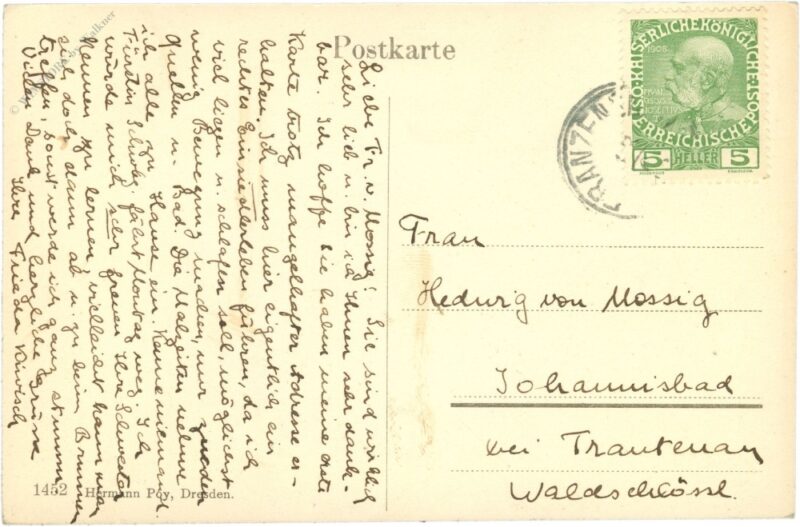 Postkarte
Liebe Fr. v. Mossig! Sie sind wirklich
sehr lieb u. bin ich Ihnen sehr dank-
bar. Ich hoffe Sie haben meine erste
Karte trotz mangelhafter Adresse er-
halten. Ich muss hier eigentlich ein
rechtes Einsiedlerleben führen, da ich
viel liegen u. schlafen soll, möglichst
wenig Bewegung machen, nur zu den
Quellen u. Bad. Die Malzeiten nehme
ich alle zu Hause ein. Kenne niemand.
Fürstin fährt Montag weg. Ich
würde mich sehr freuen Ihre Schwester
kennen zu lernen, vielleicht kann man
sich doch dann ab u. zu beim Brunnen
treffen, sonst werde ich ganz stumm.
Vielen Dank und herzliche Grüsse
Ihre Frieda
Frau
Hedwig von Mossig
Johannisbad
bei Trautenau
Waldschlössl.
1452 Hermann Poy, Dresden.
KAISERLICHE KÖNIGLICHE
ÖSTERREICHISCHE POST
1908
5 HELLER 5
FRANZENS